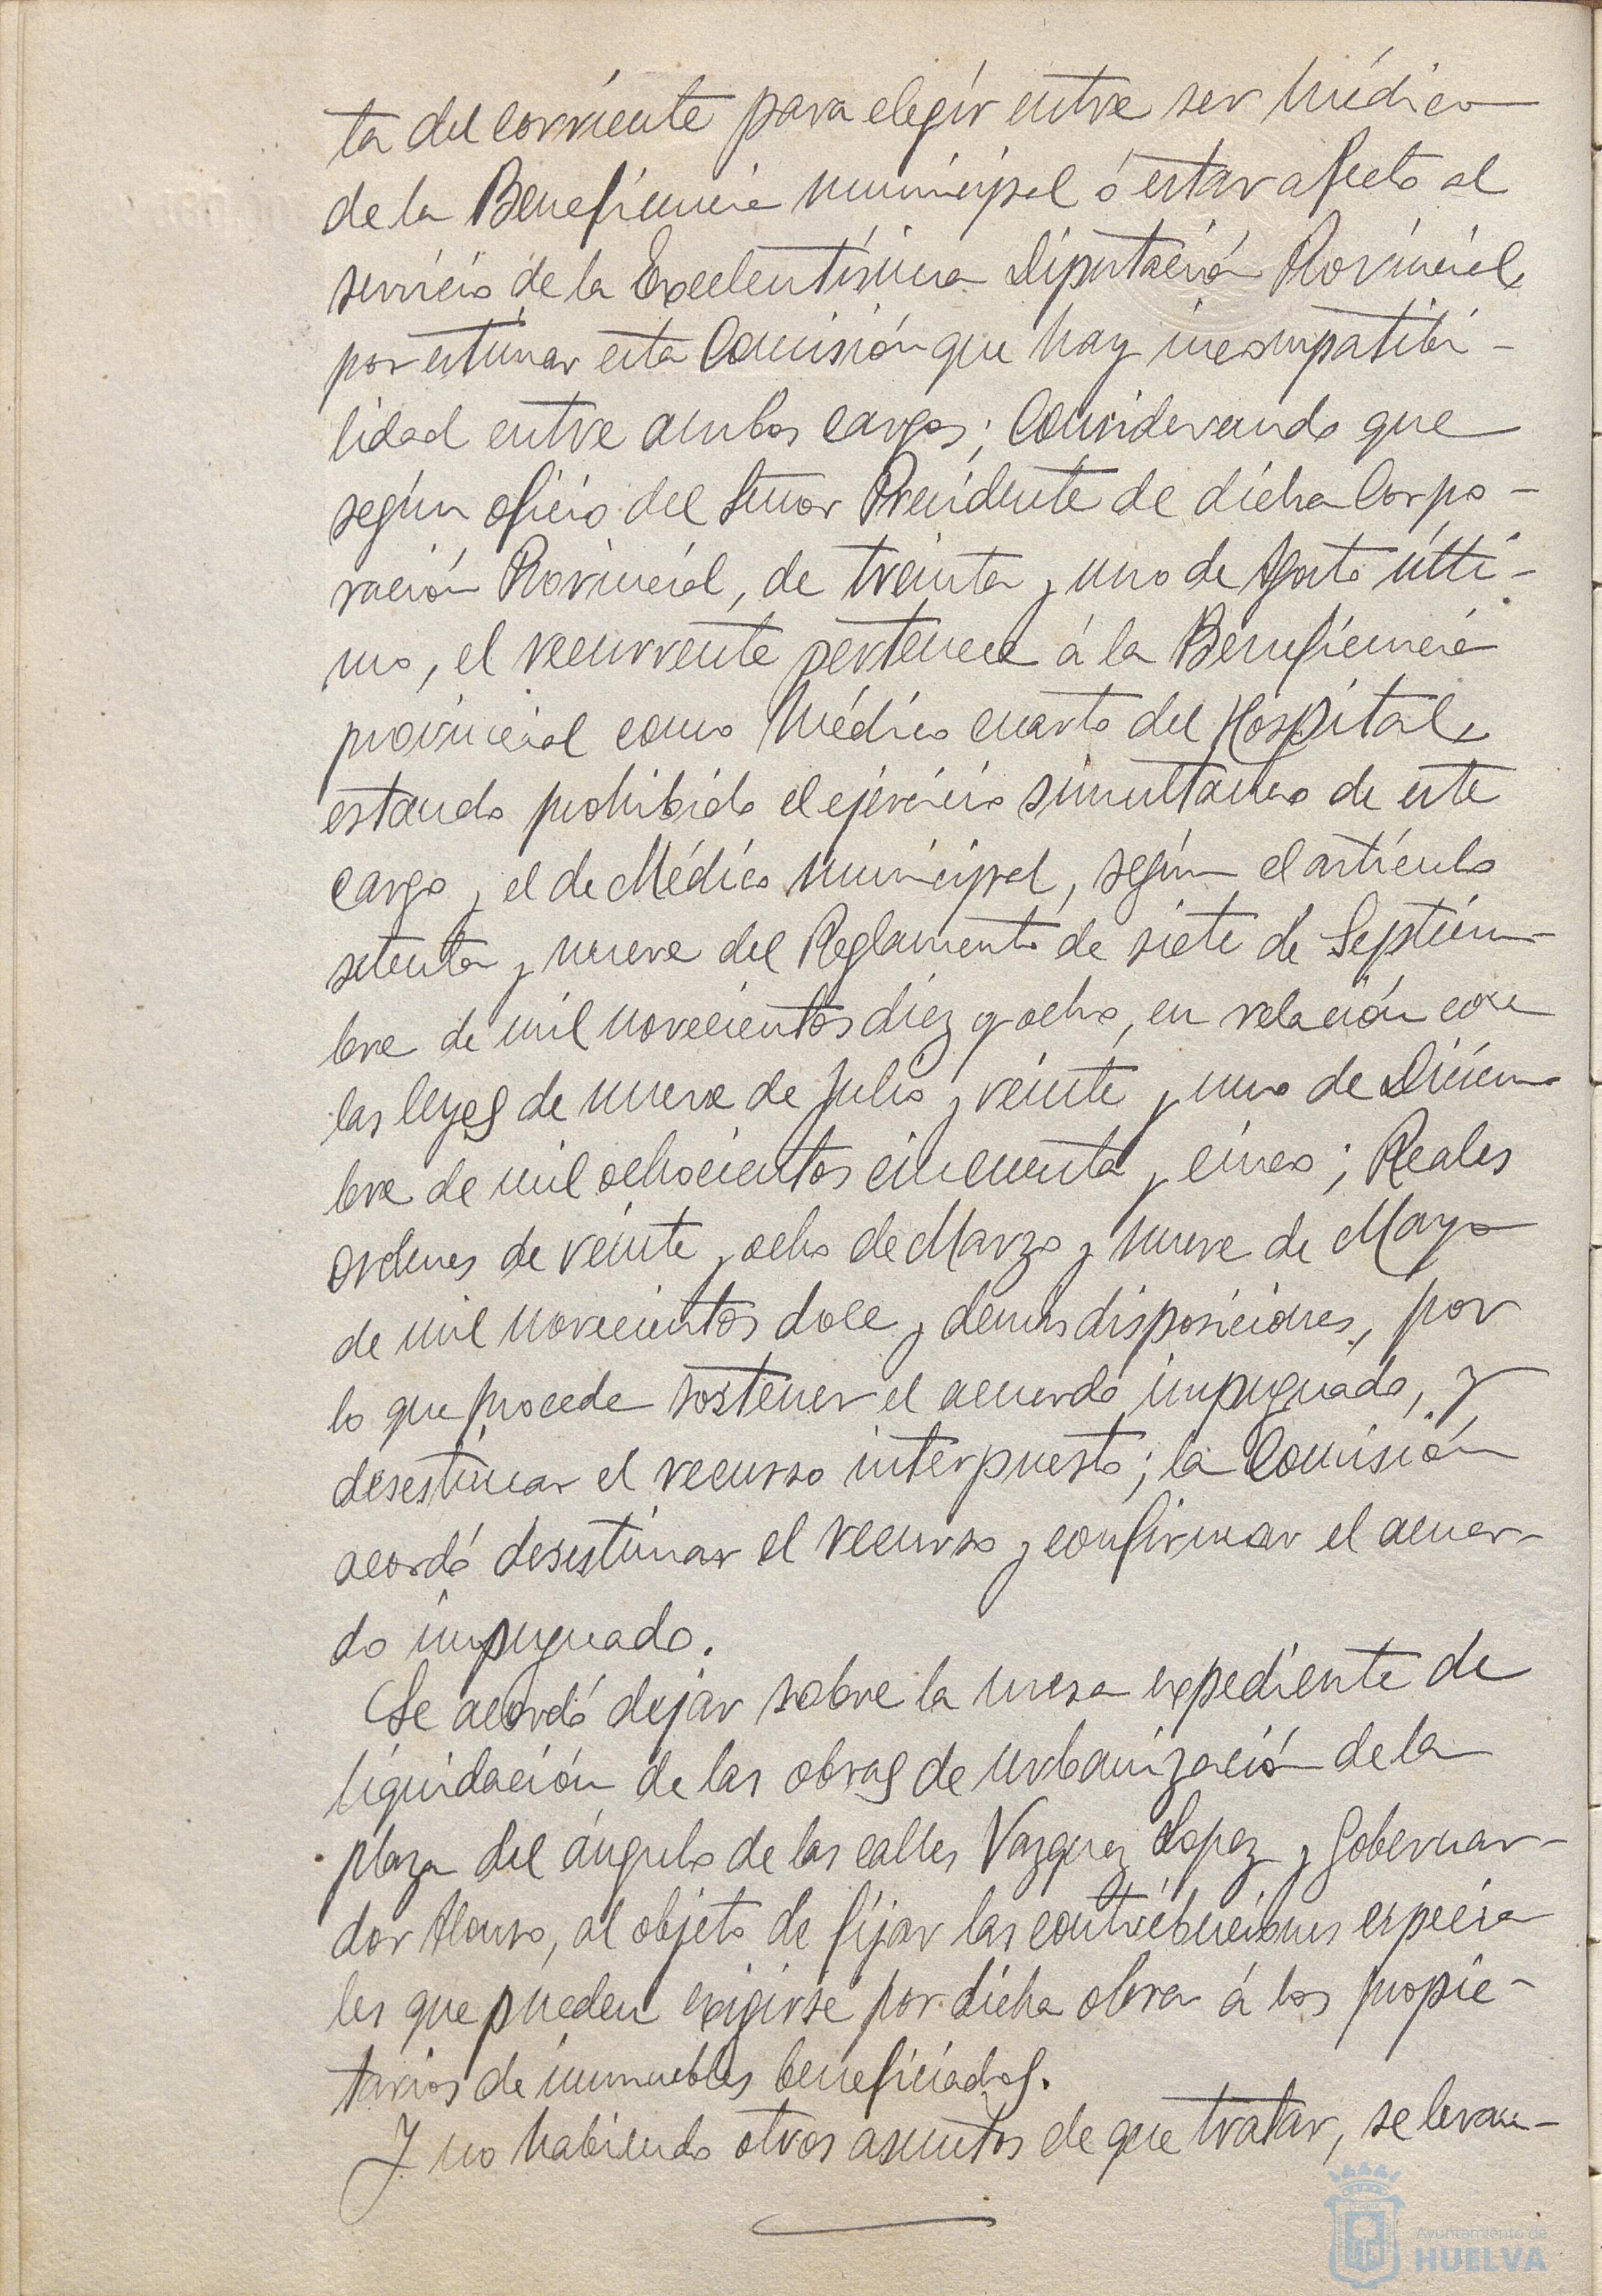 ta del corriente para elegir entre ser Médico
de la Beneficencia municipal ó estar afecto al
servicio de la Excelentísima Diputación Provincial,
por estimar esta Comisión que hay incompatibi-
lidad entre ambos cargos; Considerando que
según oficio del Señor Presidente de dicha Corpo-
ración Provincial, de treinta y uno de Agosto últi-
mo, el recurrente pertenece á la Beneficencia
provincial como Médico cuarto del Hospital,
estando prohibido el ejercicio simultaneo de este
cargo y el de Médico municipal, según el artículo
setenta y nueve del Reglamento de siete de Septiem-
bre de mil novecientos diez y ocho, en relación con
las leyes de nueve de Julio y veinte y uno de Diciem-
bre de mil ochocientos cincuenta y cinco; Reales
ordenes de veinte y ocho de Marzo y nueve de Mayo
de mil novecientos doce y demas disposiciones, por
lo que procede sostener el acuerdo impugnado, y
desestimar el recurso interpuesto; la Comisión
acordó desestimar el recurso y confirmar el acuer-
do impugnado.
Se acordó dejar sobre la mesa expediente de
liquidación de las obras de urbanización de la
plaza del ángulo de las calles Vazquez Lopez y Gobernar-
dor Alonso, al objeto de fijar las contribuciones especia
les que pueden exigirse por dicha obra á los propie-
tarios de inmuebles beneficiados.
Y no habiendo otros asuntos de que tratar, se levan-
Ayuntamiento de
HUELVA